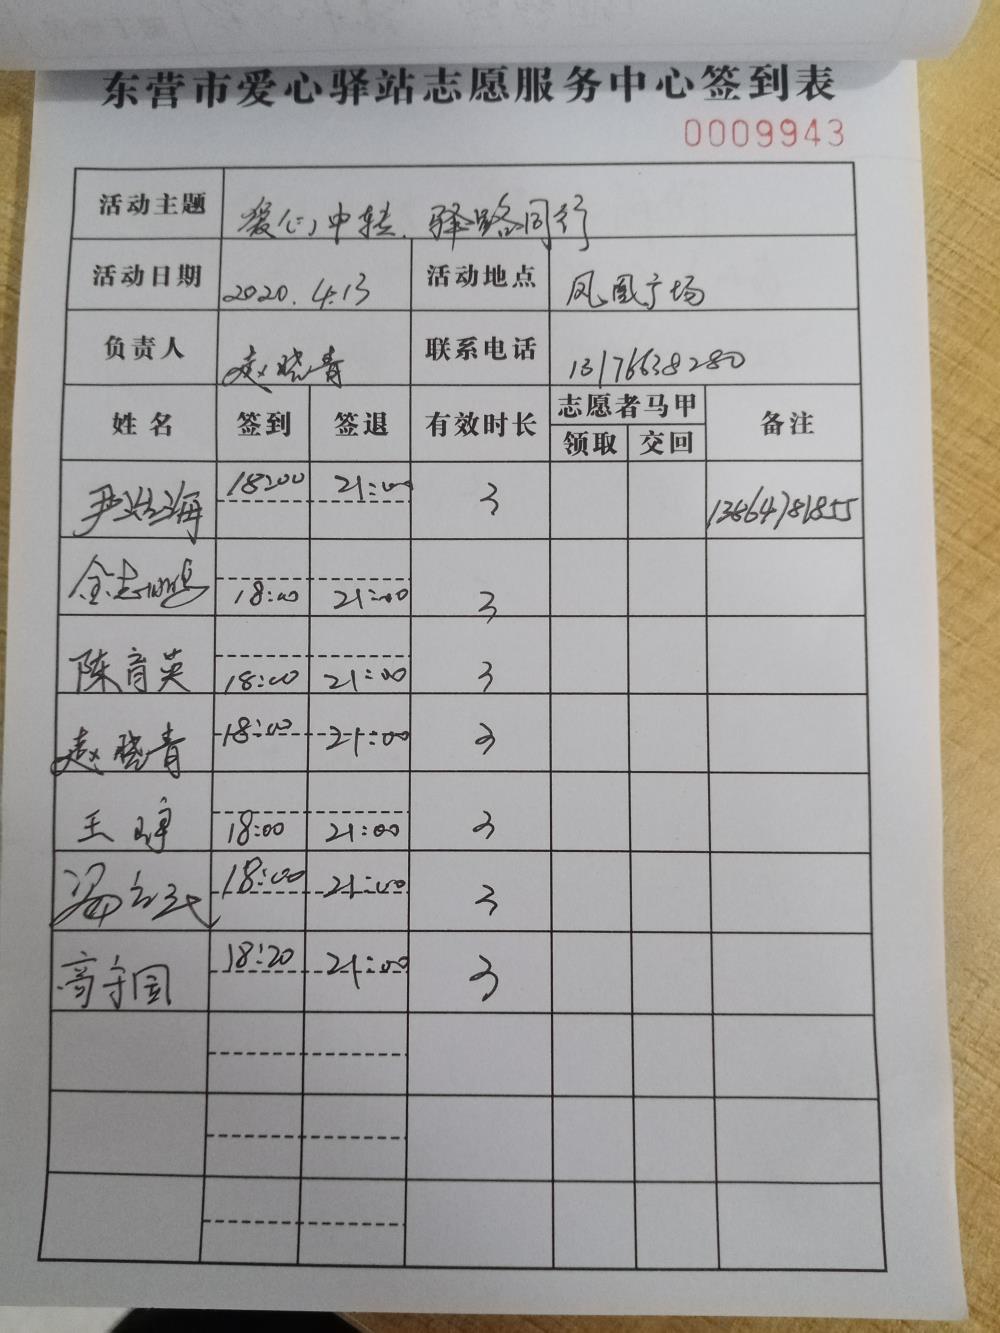 东营市爱心驿站志愿服务中心签到表
0009943
活动主题 爱心中转、驿路同行
活动日期 2020.4.13 活动地点 凤凰广场
负责人 赵晓青 联系电话 13176638280
姓名 签到 签退 有效时长 志愿者马甲 备注
领取 交回
尹 海 18:00 21:00 3 13864781855
金志明 18:00 21:00 3
陈育英 18:00 21:00 3
赵晓青 18:00 21:00 3
王 18:00 21:00 3
梁 18:00 21:00 3
高守国 18:20 21:00 3